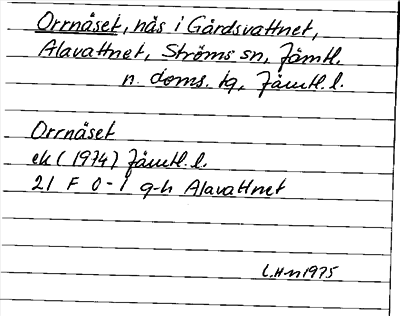 Orrnåset, näs i Gårdsvattnet,
Alavattnet, Ströms sn, Jämtl.
n. doms. tg, Jämtl. l.
Orrnåset
ek (1974) Jämtl. l.
21 F 0-1 g-h Alavattnet
L.H-n 1975